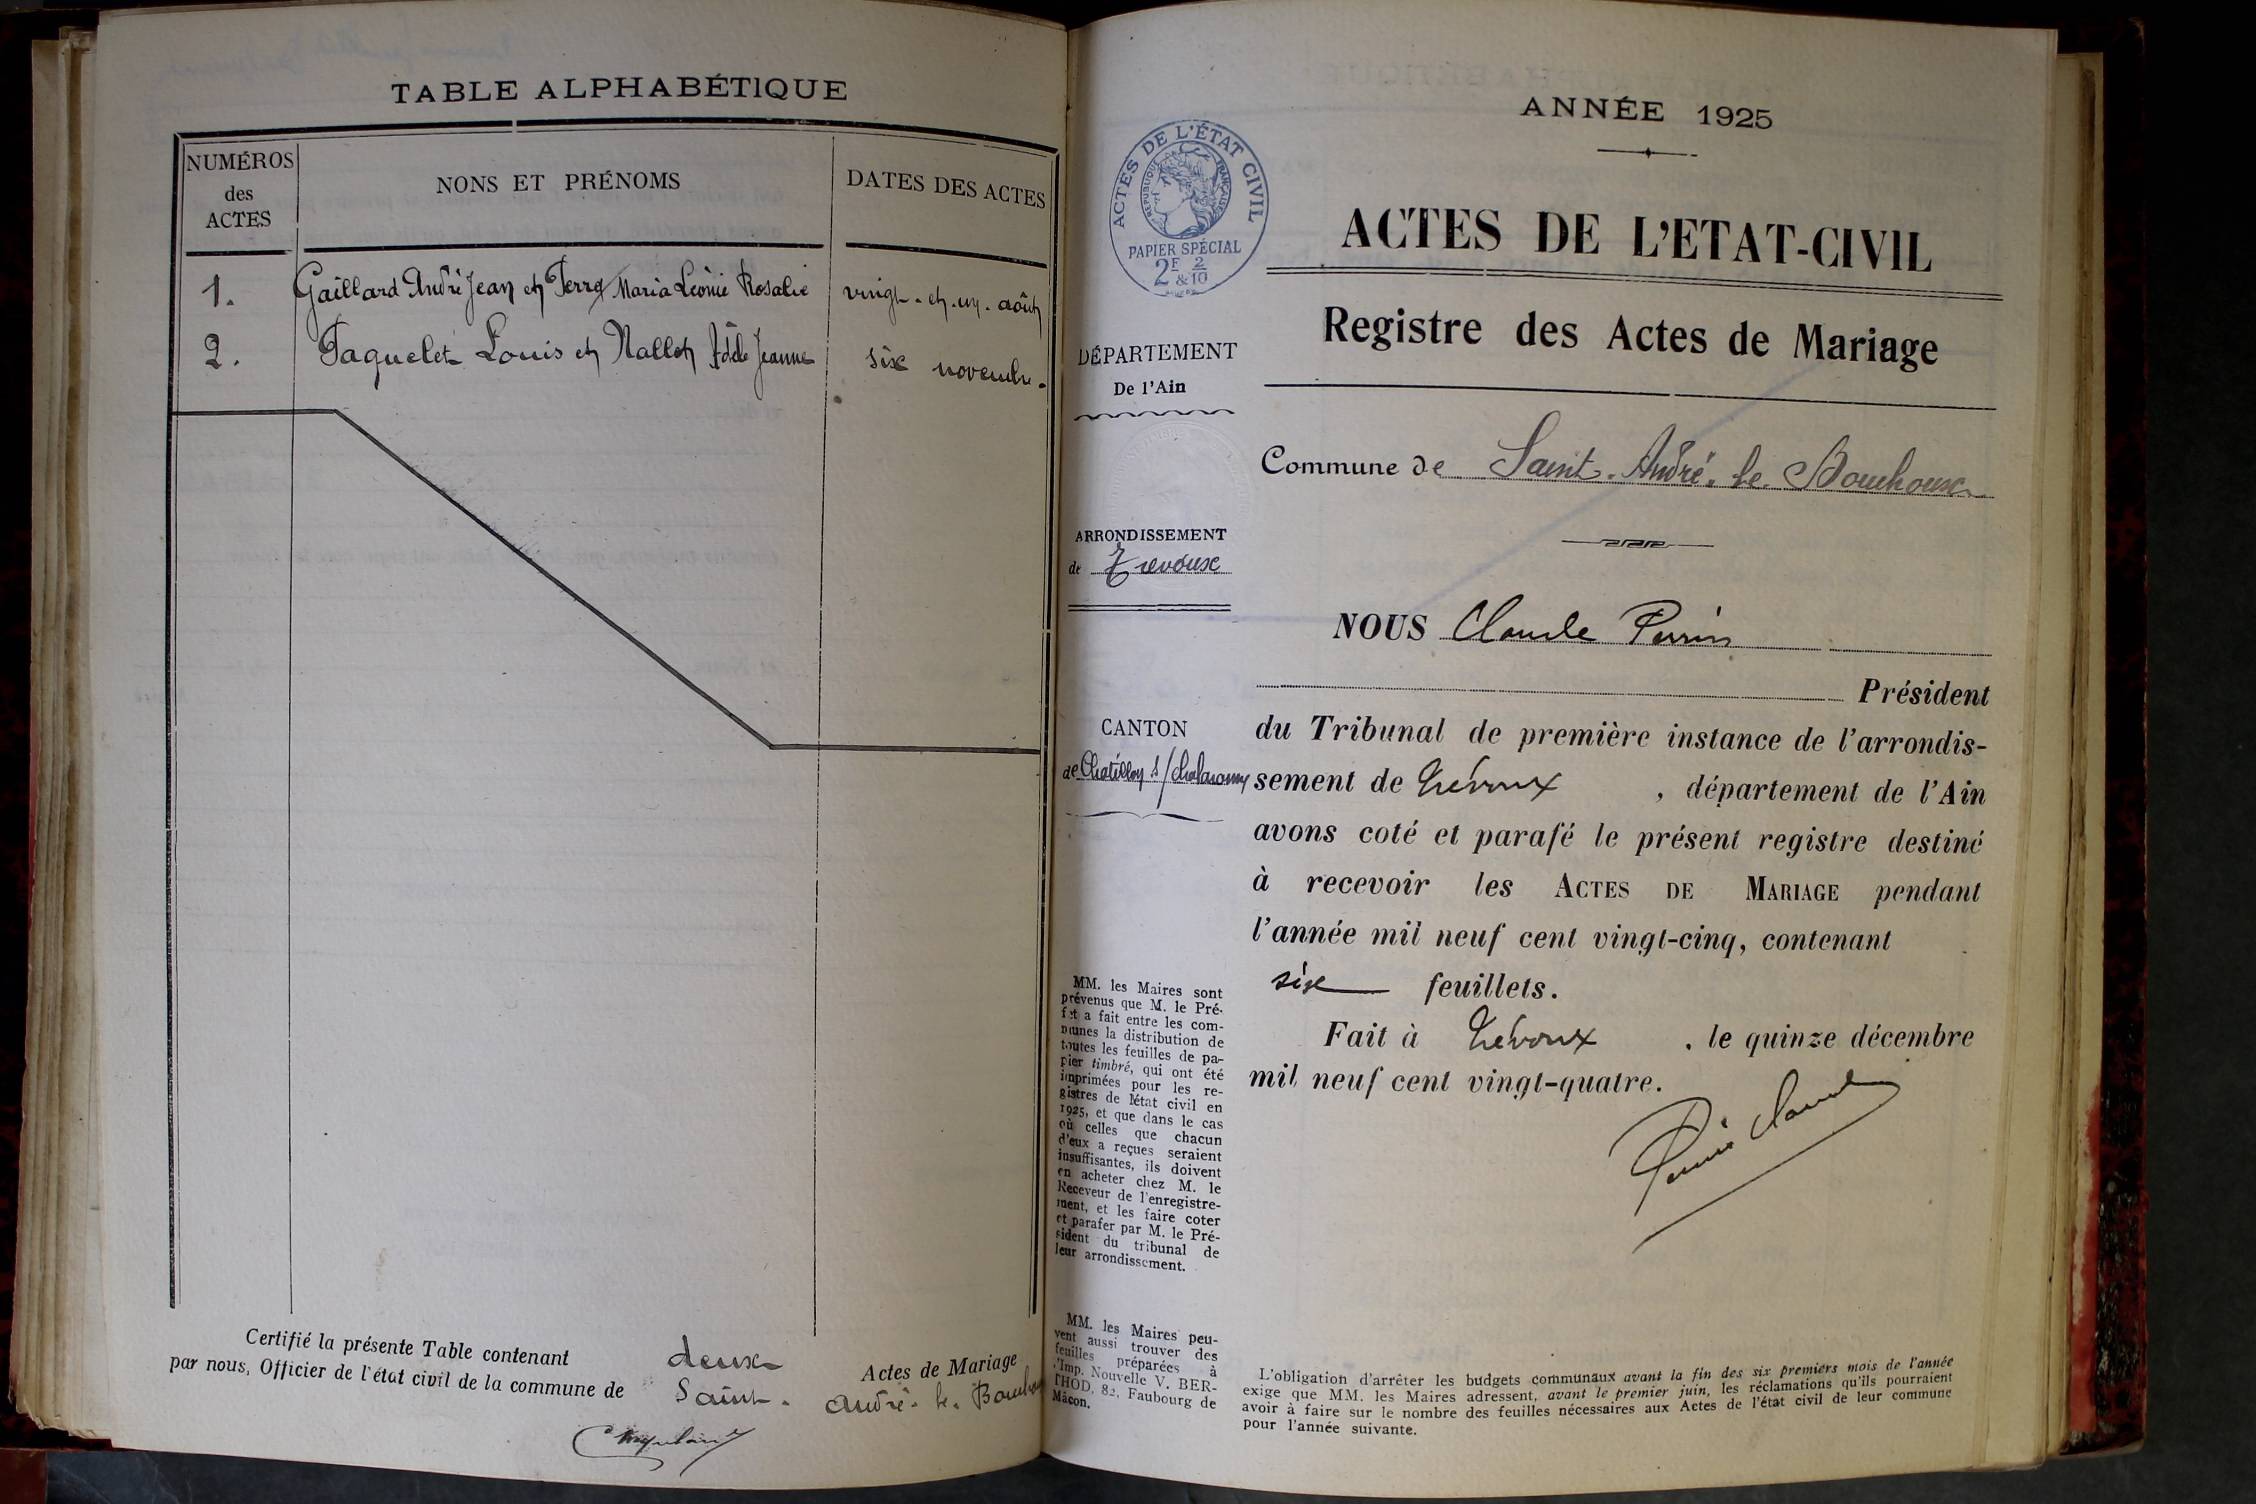 TABLE ALPHABÉTIQUE
NUMÉROS
des
ACTES
NONS ET PRÉNOMS
DATES DES ACTES
1. Gaillard André Jean et Ferra Maria Léonie Rosalie vingt-et-un août
2. Paquelet Louis et Nallet Adèle Jeanne six novembre.
Certifié la présente Table contenant deux Actes de Mariage
par nous, Officier de l'état civil de la commune de Saint-André-le-Bouchoux
ANNÉE 1925
ACTES DE L'ÉTAT CIVIL
RÉPUBLIQUE FRANÇAISE
PAPIER SPÉCIAL
2F & 2/10
ACTES DE L'ETAT-CIVIL
Registre des Actes de Mariage
DÉPARTEMENT
De l'Ain
Commune de Saint-André-le-Bouchoux
ARRONDISSEMENT
de Trévoux
CANTON
de Chatillon s/Chalaronne
NOUS Claude Perrin
Président
du Tribunal de première instance de l'arrondis-
sement de Trévoux, département de l'Ain
avons coté et parafé le présent registre destiné
à recevoir les ACTES DE MARIAGE pendant
l'année mil neuf cent vingt-cinq, contenant
six feuillets.
Fait à Trévoux, le quinze décembre
mil neuf cent vingt-quatre.
Perrin Claude
MM. les Maires sont
prévenus que M. le Pré-
fet a fait entre les com-
munes la distribution de
toutes les feuilles de pa-
pier timbré, qui ont été
imprimées pour les re-
gistres de l'état civil en
1925, et que dans le cas
où celles que chacun
d'eux a reçues seraient
insuffisantes, ils doivent
en acheter chez M. le
Receveur de l'enregistre-
ment, et les faire coter
et parafer par M. le Pré-
sident du tribunal de
leur arrondissement.
MM. les Maires peu-
vent aussi trouver des
feuilles préparées à
l'Imp. Nouvelle V. BER-
THOD, 82, Faubourg de
Mâcon.
L'obligation d'arrêter les budgets communaux avant la fin des six premiers mois de l'année
exige que MM. les Maires adressent, avant le premier juin, les réclamations qu'ils pourraient
avoir à faire sur le nombre des feuilles nécessaires aux Actes de l'état civil de leur commune
pour l'année suivante.